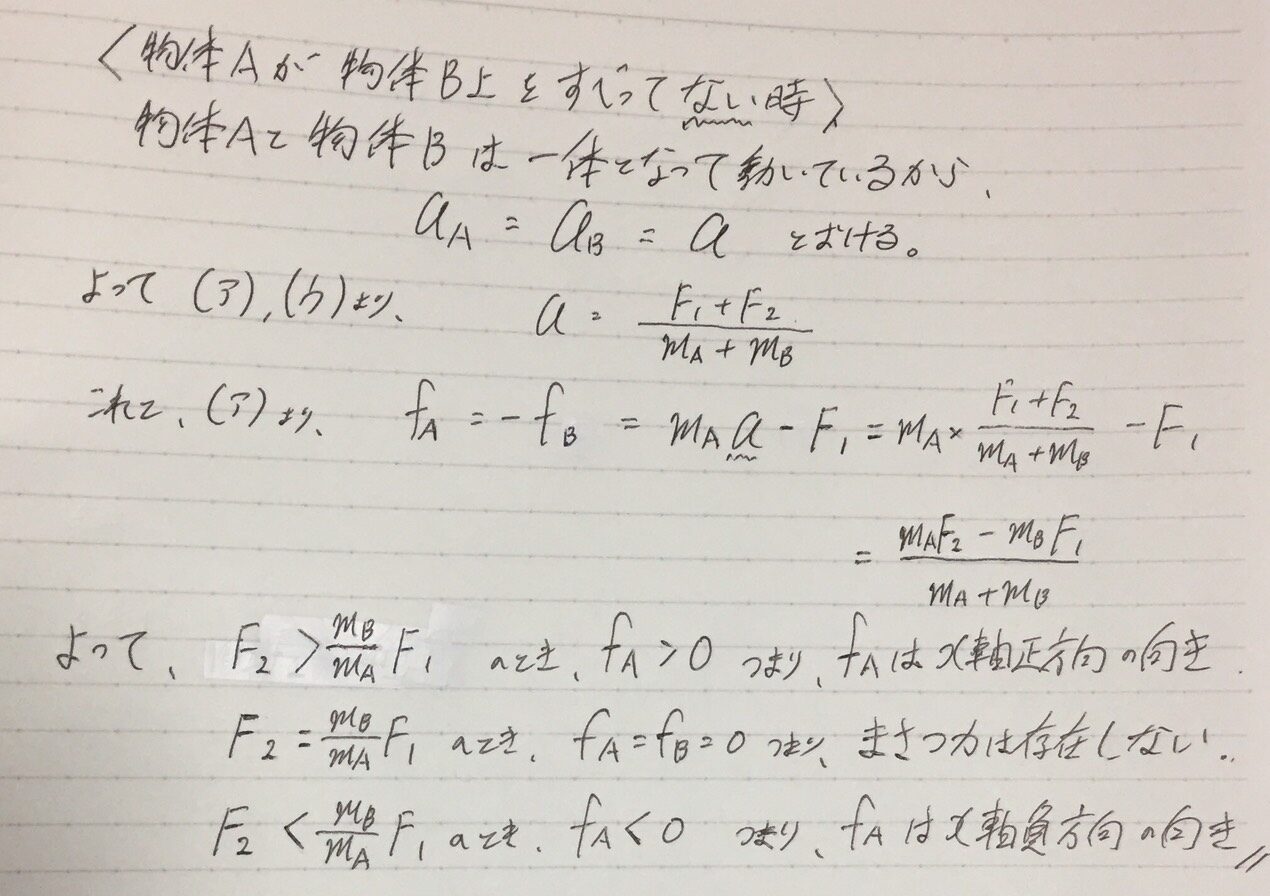 〈物体Aが物体B上をすべってない時〉
物体Aと物体Bは一体となって動いているから、
a_A = a_B = a とおける。
よって (ア),(ウ)より、 a = (F₁+F₂)/(m_A+m_B)
これと、(ア)より、 f_A = -f_B = m_A a - F₁ = m_A × (F₁+F₂)/(m_A+m_B) - F₁
= (m_AF₂ - m_BF₁)/(m_A+m_B)
よって、 F₂ > (m_B/m_A) F₁ のとき、f_A > 0 つまり、f_Aはx軸正方向の向き.
F₂ = (m_B/m_A) F₁ のとき、f_A = f_B = 0 つまり、まさつ力は存在しない.
F₂ < (m_B/m_A) F₁ のとき、f_A < 0 つまり、f_Aはx軸負方向の向き //